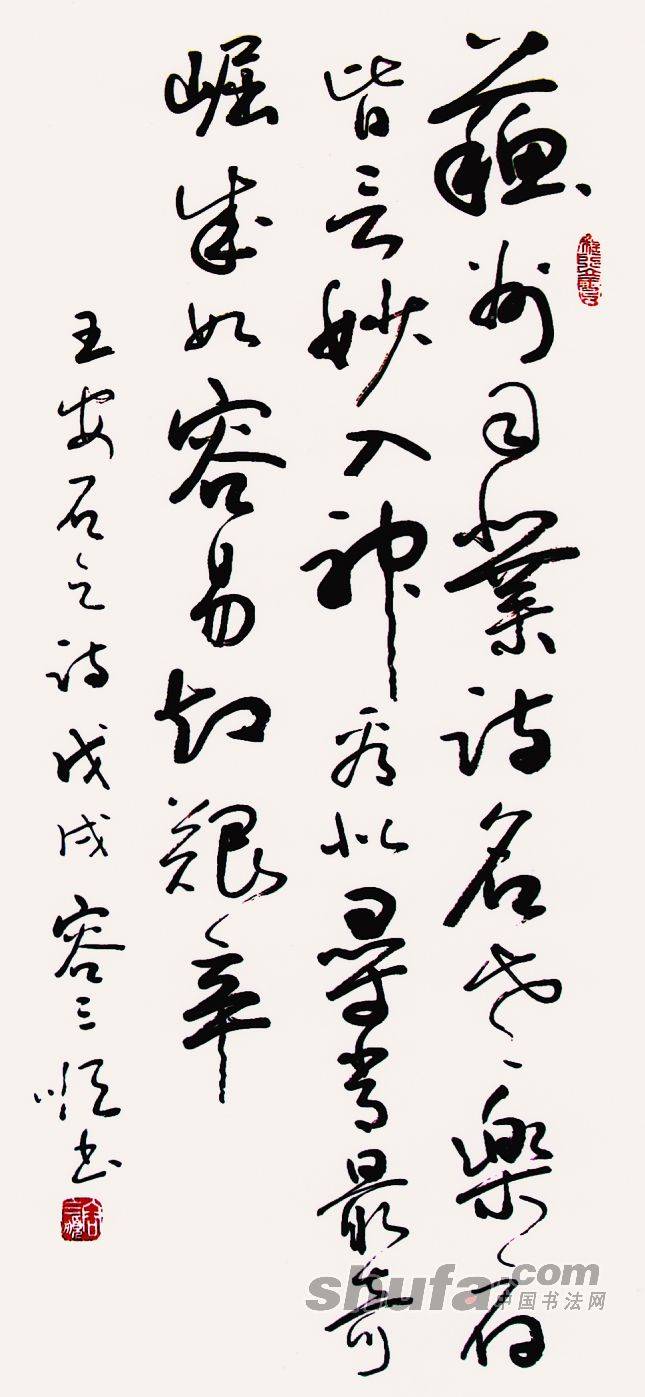 蘇州司業詩名老樂府
皆言妙入神看似尋常最奇
崛成如容易却艱辛
王安石之詩戊戌容三順书
shufa.com
中国书法网